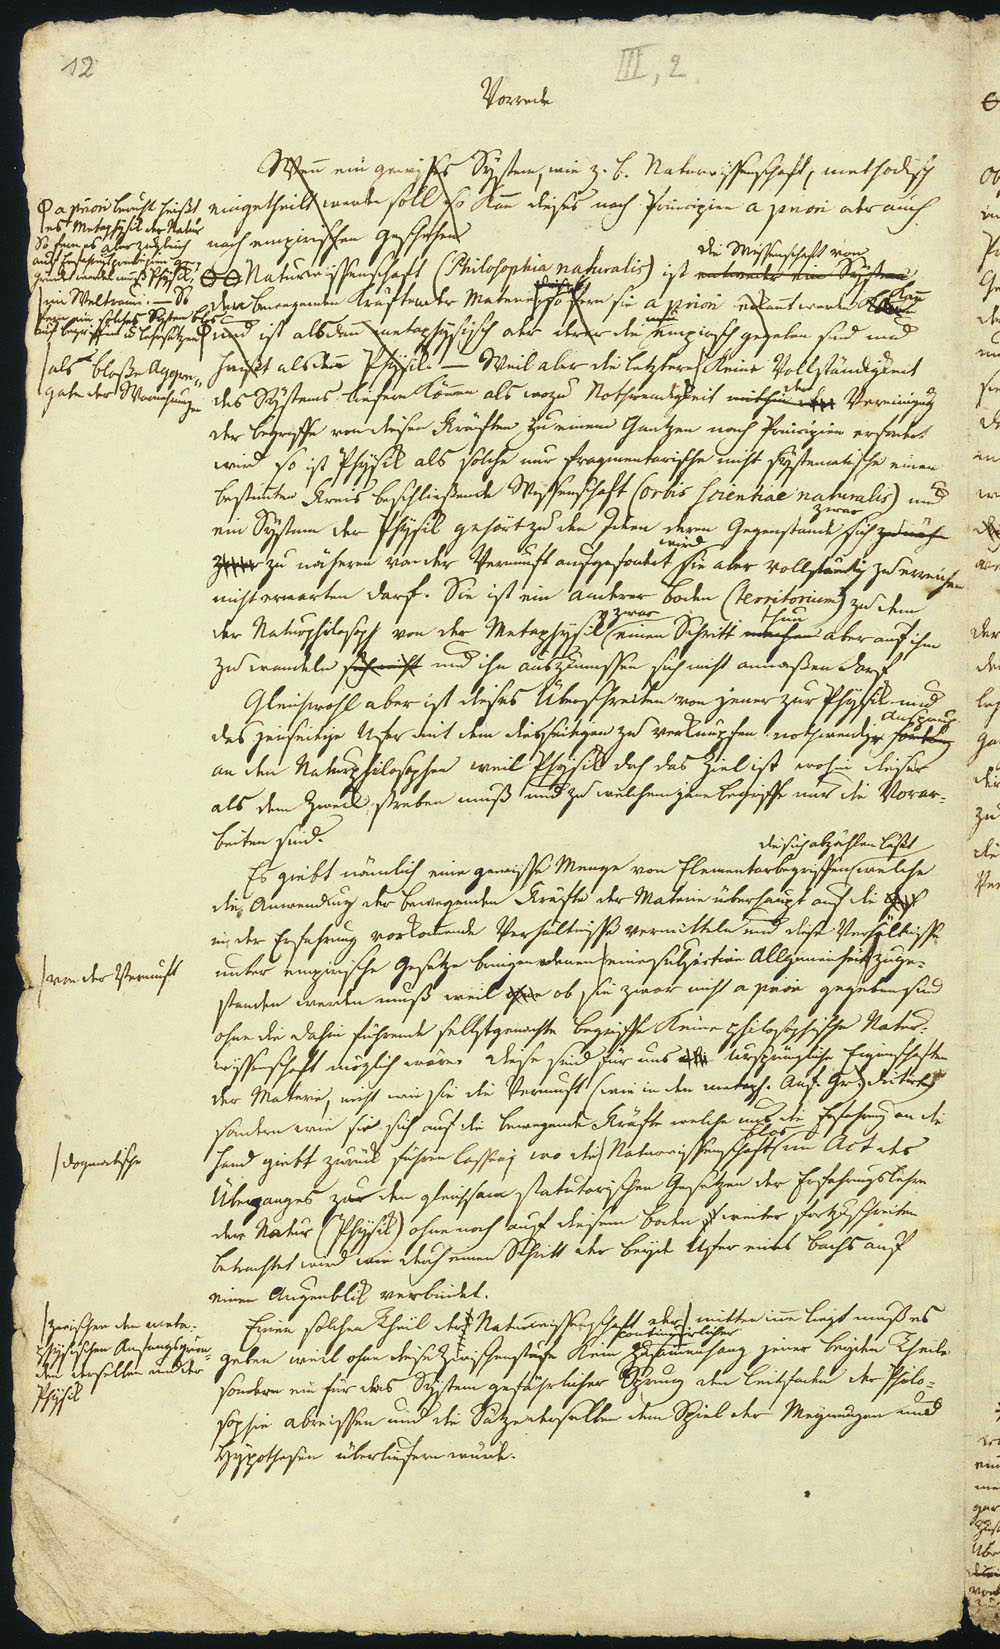 12
III, 2
Vorrede
Wenn ein gewisses System, wie z. B. Naturwissenschaft, methodisch
eingetheilt werden soll so kan dieses nach Principien a priori oder auch
nach empirischen geschehen
die Wissenschaft von
Naturwissenschaft (Philosophia naturalis) ist entweder ein System
den bewegenden Kräften der Materie so fern sie a priori erkannt werden kan
und ist alsdan metaphysisch oder derer die empirisch gegeben sind und
heißt alsdenn Physik. — Weil aber die letztere keine Vollständigkeit
des Systems liefern können als wozu Nothwendigkeit mithin der Vereinigung
der Begriffe von diesen Kräften zu einem Gantzen nach Principien erfodert
wird so ist Physik als solche nur fragmentarische nicht systematische einen
bestimten Kreis beschließende Wissenschaft (orbis scientiae naturalis) und
zwar
ein System der Physik gehört zu den Ideen deren Gegenstande sich zu näh
wird
zu näheren von der Vernunft aufgefodert sie aber vollständig zu erreichen
nicht erwarten darf. Sie ist ein anderer Boden (territorium) zu dem
zwar thun
der Naturphilosoph von der Metaphysik einen Schritt machen aber auf ihm
zu wandeln sich nicht und ihn auszumessen sich nicht anmaßen darf
Gleichwohl aber ist dieses Überschreiten von jener zur Physik und
Anspruch
das jenseitige Ufer mit dem diesseitigen zu verknüpfen nothwendiger
an den Naturphilosophen weil Physik doch das Ziel ist wohin dieser
als dem Zweck streben muß und zu welchem jene Begriffe nur die Vorar-
beiten sind.
die sich abzählen läßt
Es giebt nämlich eine gewisse Menge von Elementarbegriffen welche
die Anwendung der bewegenden Kräfte der Materie überhaupt auf die
in der Erfahrung vorkomende Verhältnisse vermitteln und diese Verhältnisse
unter empirische Gesetze bringen denen eine subjective Allgemeinheit zuge-
standen werden muß weil ob sie zwar nicht a priori gegeben sind
ohne die dahin führende selbstgemachte Begriffe keine philosophische Natur-
wissenschaft möglich wäre. Diese sind für uns ursprüngliche Eigenschaften
der Materie, nicht wie sie die Vernunft (wie in den metaph. Anf. Gr.) dictirt
sondern wie sie sich auf die bewegende Kräfte welche uns die Erfahrung an die
blos
Hand giebt zurük führen lassen wo die Naturwissenschaft im Act des
Überganges zu den gleichsam statutarischen Gesetzen der Erfahrungslehre
der Natur (Physik) ohne noch auf diesem Boden weiter fortzuschreiten
betrachtet wird wie durch einen Schritt der beyde Ufer eines Bachs auf
einen Augenblik verbindet.
Einen solchen Theil der Naturwissenschaft der mitten inne liegt muß es
continuirlicher
geben weil ohne diese Zwischenstufe kein Zusammenhang jener beyden Theile
sondern ein für das System gefährlicher Sprung den Leitfaden der Philo-
sophie abreissen und die Sätze derselben dem Spiel der Meynungen und
Hypothesen überliefern würde.
a priori beruht heißt
es Metaphysik der Natur
So fern es aber zugleich
auf Erfahrungsprincipien ge-
gründet werden muß Physik
als bloße Aggre-
gate der Warnehmungen
von der Vernunft
dogmatische
zwischen den meta-
physischen Anfangsgrün-
den derselben und der
Physik